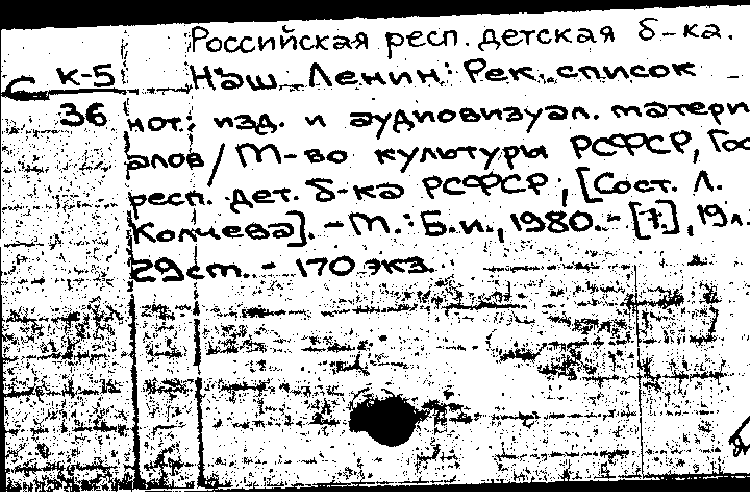 Российская респ. детская б-ка.
С К-5 Наш Ленин: Рек. список
36 нот. изд. и аудиовизуал. матери
алов / М-во культуры РСФСР, Гос
респ. дет. б-ка РСФСР; [Сост. Л.
Колчева]. - М.: Б.и., 1980. - [7], 19л.
29см. - 170 экз.